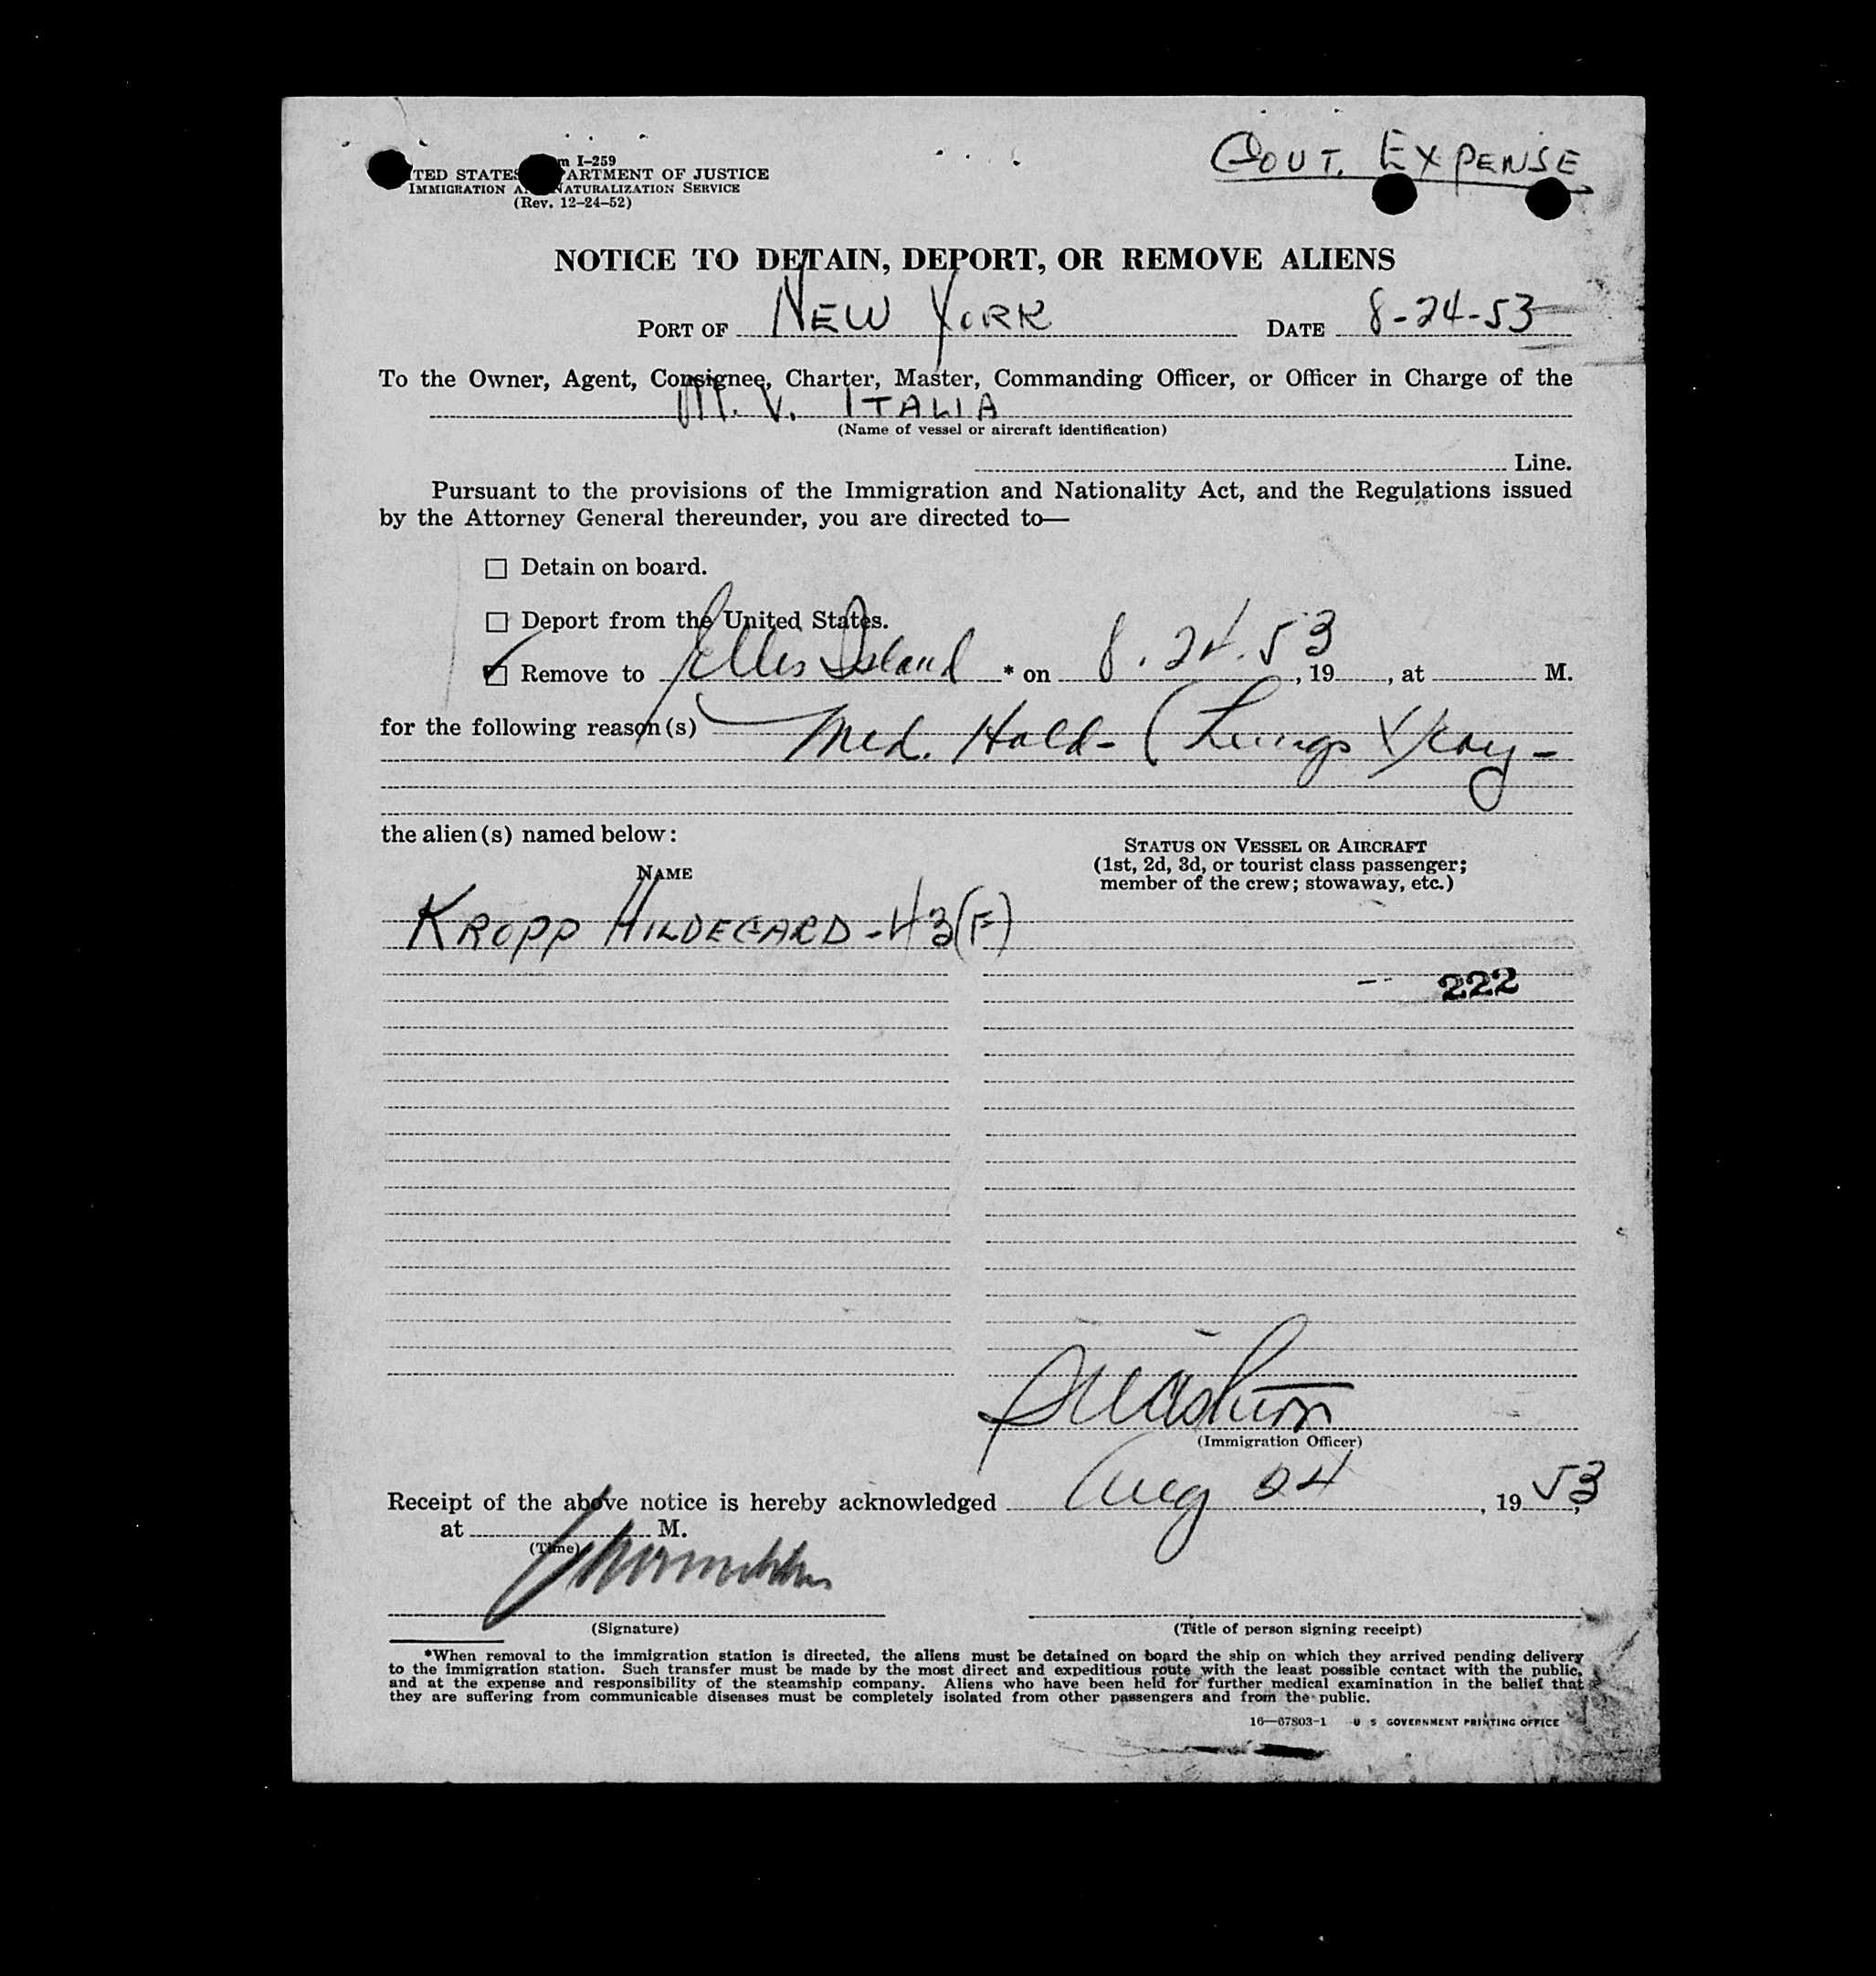 m I-259
GOVT. EXPENSE
TED STATES PARTMENT OF JUSTICE
IMMIGRATION A NATURALIZATION SERVICE
(Rev. 12-24-52)
NOTICE TO DETAIN, DEPORT, OR REMOVE ALIENS
PORT OF NEW YORK DATE 8-24-53
To the Owner, Agent, Consignee, Charter, Master, Commanding Officer, or Officer in Charge of the
M.V. ITALIA
(Name of vessel or aircraft identification)
Line.
Pursuant to the provisions of the Immigration and Nationality Act, and the Regulations issued
by the Attorney General thereunder, you are directed to—
☐ Detain on board.
☐ Deport from the United States.
☑ Remove to Ellis Island * on 8.24.53, 19, at M.
for the following reason(s) Med. Hold- (Lungs X Ray-
the alien(s) named below:
STATUS ON VESSEL OR AIRCRAFT
NAME
(1st, 2d, 3d, or tourist class passenger;
member of the crew; stowaway, etc.)
KROPP HILDEGARD-43(F)
222
(Immigration Officer)
Receipt of the above notice is hereby acknowledged Aug 24, 1953,
at M.
(Time)
(Signature) (Title of person signing receipt)
*When removal to the immigration station is directed, the aliens must be detained on board the ship on which they arrived pending delivery
to the immigration station. Such transfer must be made by the most direct and expeditious route with the least possible contact with the public,
and at the expense and responsibility of the steamship company. Aliens who have been held for further medical examination in the belief that
they are suffering from communicable diseases must be completely isolated from other passengers and from the public.
16—67803-1 U S GOVERNMENT PRINTING OFFICE